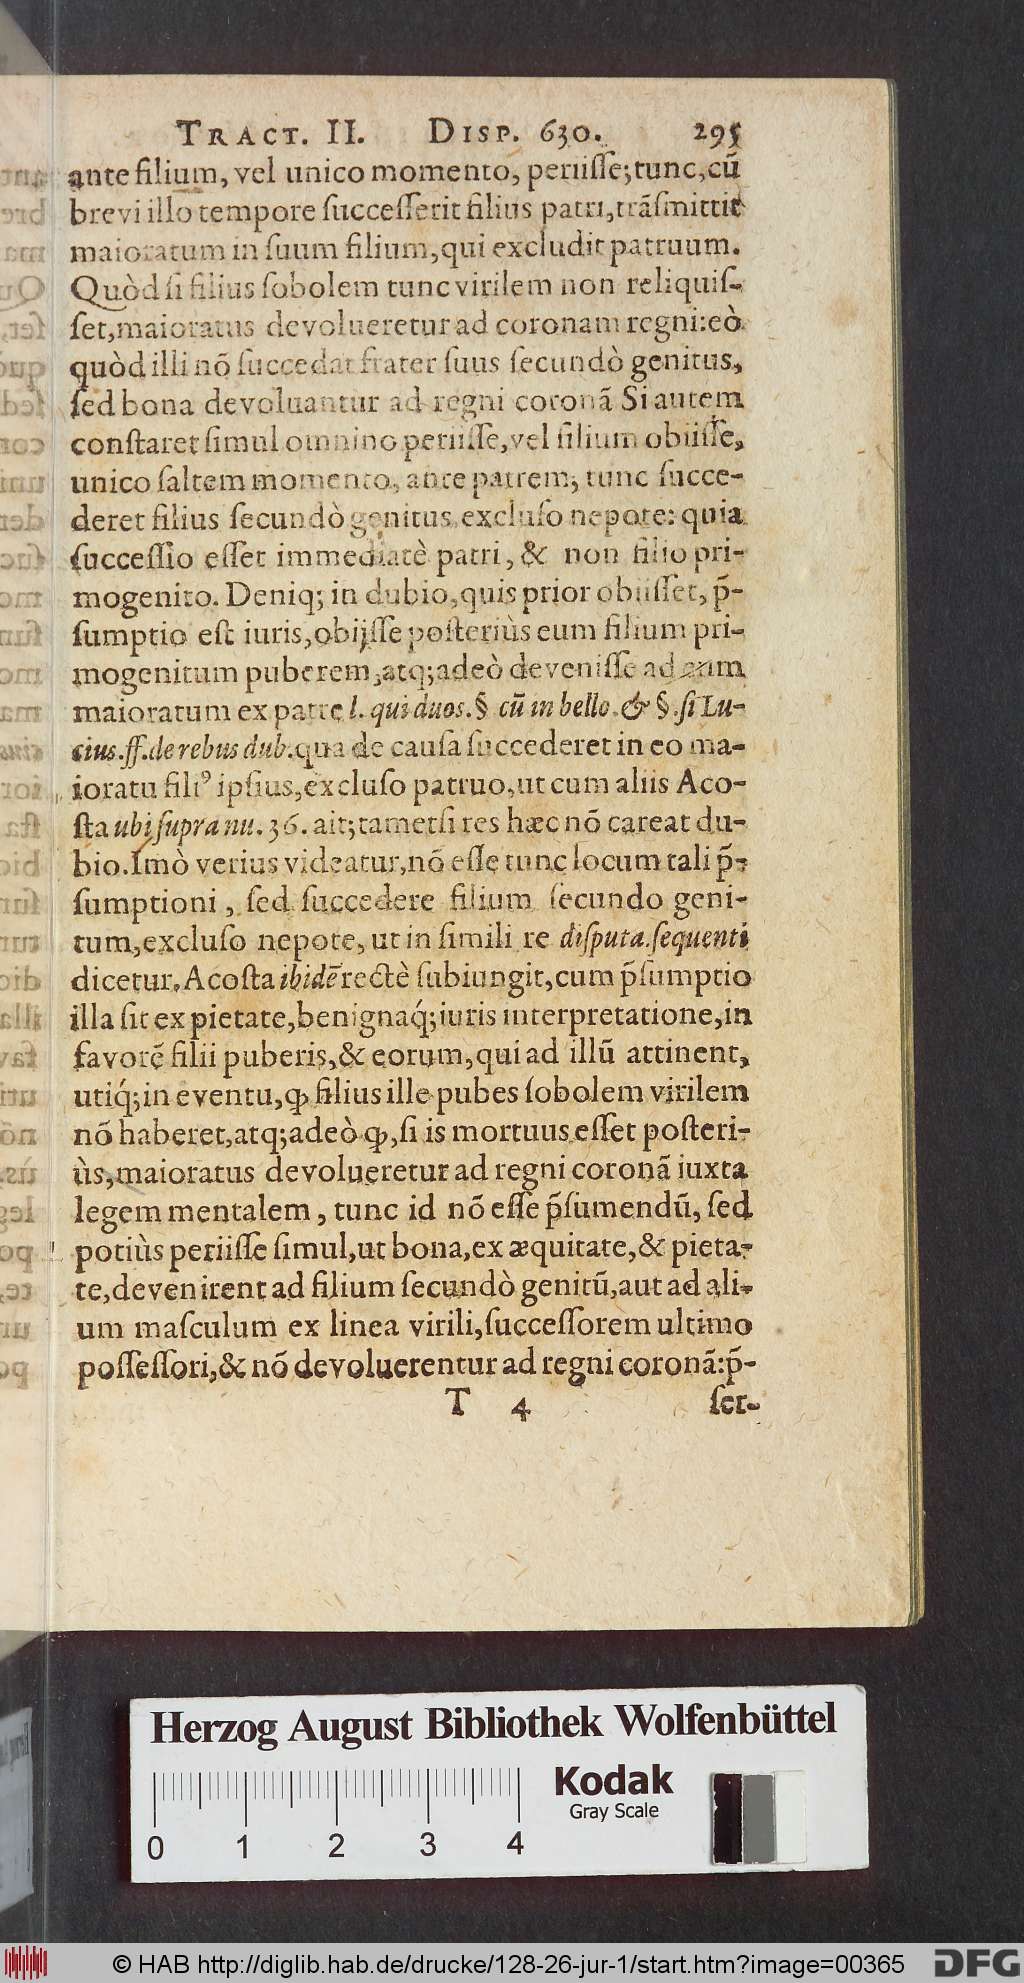 TRACT. II. DISP. 630. 295
ante filium, vel unico momento, periiſſe; tunc, cũ
brevi illo tempore ſucceſſerit filius patri, trãſmittit
maioratum in ſuum filium, qui excludit patruum.
Quòd ſi filius ſobolem tunc virilem non reliquiſ-
ſet, maioratus devolueretur ad coronam regni: eò
quòd illi nõ ſuccedat frater ſuus ſecundò genitus,
ſed bona devoluantur ad regni coronã Si autem
conſtaret ſimul omnino periiſſe, vel filium obiiſſe,
unico ſaltem momento, ante patrem; tunc ſucce-
deret filius ſecundò genitus excluſo nepote: quia
ſucceſſio eſſet immediatè patri, & non filio pri-
mogenito. Deniq; in dubio, quis prior obiiſſet, p̃-
ſumptio eſt iuris, obijſſe poſteriùs eum filium pri-
mogenitum puberem, atq; adeò deveniſſe ad eum
maioratum ex patre l. qui duos. § cũ in bello. & §. ſi Lu-
cius. ff. de rebus dub. qua de cauſa ſuccederet in eo ma-
ioratu filiꝰ ipſius, excluſo patruo, ut cum aliis Aco-
ſta ubi ſupra nu. 36. ait; tametſi res hæc nõ careat du-
bio. Imò verius videatur, nõ eſſe tunc locum tali p̃-
ſumptioni, ſed ſuccedere filium ſecundo geni-
tum, excluſo nepote, ut in ſimili re diſputa. ſequenti
dicetur. Acoſta ibidẽ rectè ſubiungit, cum p̃ſumptio
illa ſit ex pietate, benignaq́; iuris interpretatione, in
favorẽ filii puberis, & eorum, qui ad illũ attinent,
utiq́; in eventu, ꝙ filius ille pubes ſobolem virilem
nõ haberet, atq; adeò ꝙ, ſi is mortuus eſſet poſteri-
ùs, maioratus devolueretur ad regni coronã iuxta
legem mentalem, tunc id nõ eſſe p̃ſumendũ, ſed
potiùs periiſſe ſimul, ut bona, ex æquitate, & pieta-
te, devenirent ad filium ſecundò genitũ, aut ad ali-
um maſculum ex linea virili, ſucceſſorem ultimo
poſſeſſori, & nõ devoluerentur ad regni coronã: p̃-
T 4 ſer-
Herzog August Bibliothek Wolfenbüttel
Kodak
Gray Scale
0 1 2 3 4
© HAB http://diglib.hab.de/drucke/128-26-jur-1/start.htm?image=00365
DFG